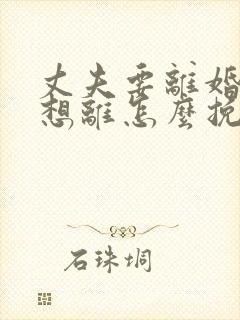 丈夫要離婚
想離怎麼挽
石珠垌